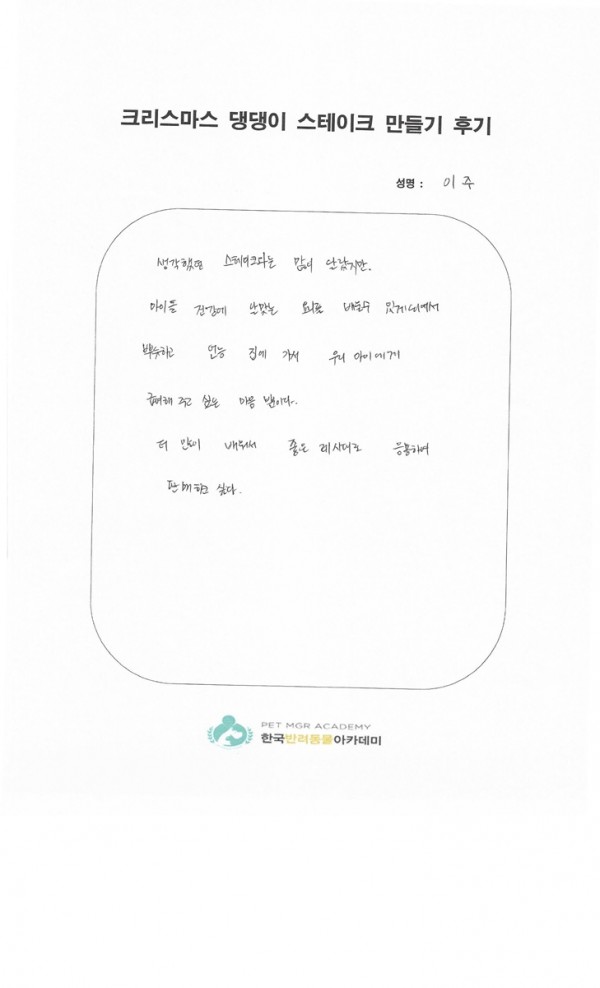 크리스마스 댕댕이 스테이크 만들기 후기
성명 : 이 주
생각했던 스테이크와는 많이 달랐지만.
아이들 건강에 알맞는 요리를 배울수 있게되어서
뿌듯하고 얼능 집에 가서 우리 아이에게
급여해 주고 싶은 마음 뿐이다.
더 많이 배워서 좋은 레시피로 응용하여
판매하고 싶다.
PET MGR ACADEMY
한국반려동물아카데미